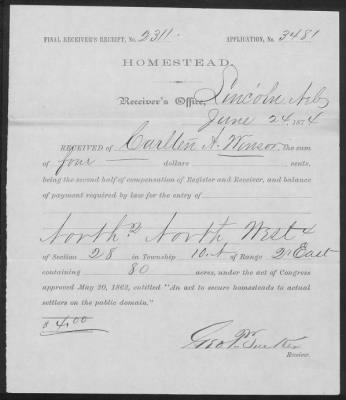 FINAL RECEIVER'S RECEIPT, No. 2311. APPLICATION, No. 3481
HOMESTEAD.
Receiver's Office, Lincoln Neb
June 24, 1874
RECEIVED OF Carlten A. Winsor the sum
of four dollars cents,
being the second half of compensation of Register and Receiver, and balance
of payment required by law for the entry of
North ½ North West ¼
of Section 28 in Township 10. N of Range 2d East
containing 80 acres, under the act of Congress
approved May 20, 1862, entitled "An act to secure homesteads to actual
settlers on the public domain."
$ 4.00
Geo P Tucker
Receiver.